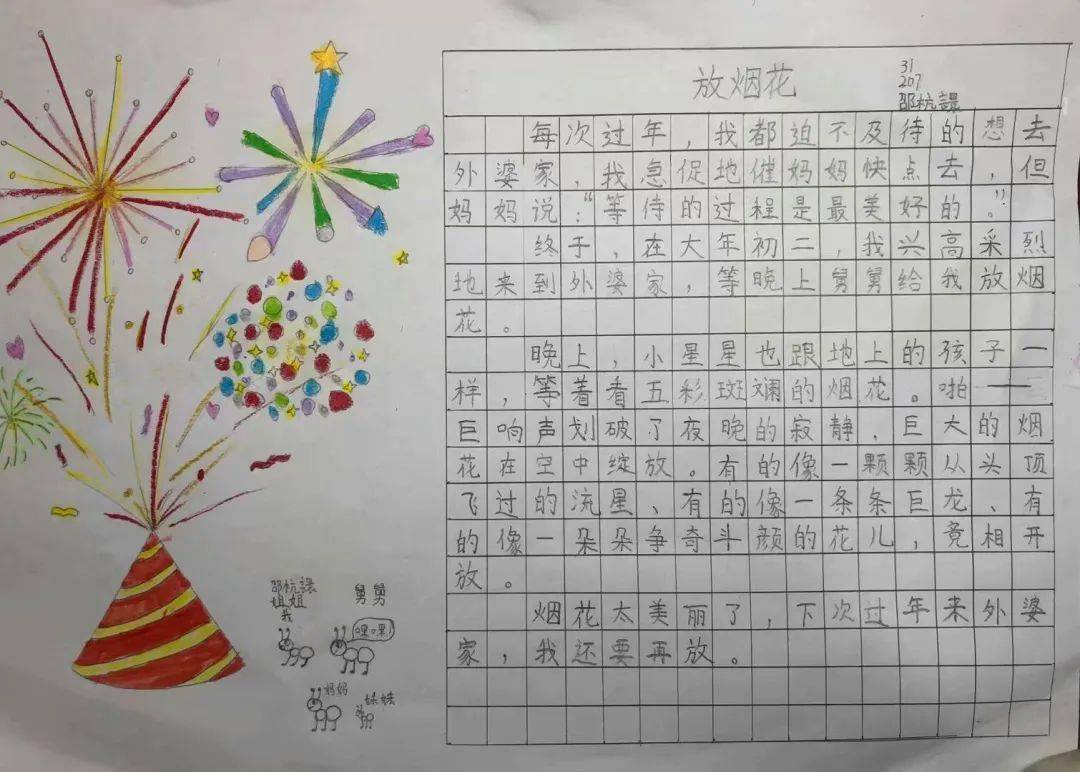 放烟花
31
207
邵杭
每次过年，我都迫不及待的想去
外婆家，我急促地催妈妈快点去，但
妈妈说：“等待的过程是最美好的。”
终于，在大年初二，我兴高采烈
地来到外婆家，等晚上舅舅给我放烟
花。
晚上，小星星也跟地上的孩子一
样，等着看五彩斑斓的烟花。啪——
巨响声划破了夜晚的寂静、巨大的烟
花在空中绽放。有的像一颗颗从头顶
飞过的流星、有的像一条条巨龙、有
的像一朵朵争奇斗颜的花儿，竞相开
放。
烟花太美丽了，下次过年来外婆
家，我还要再放。
邵杭
姐姐
我
舅舅
嘿嘿
妈妈
妹妹